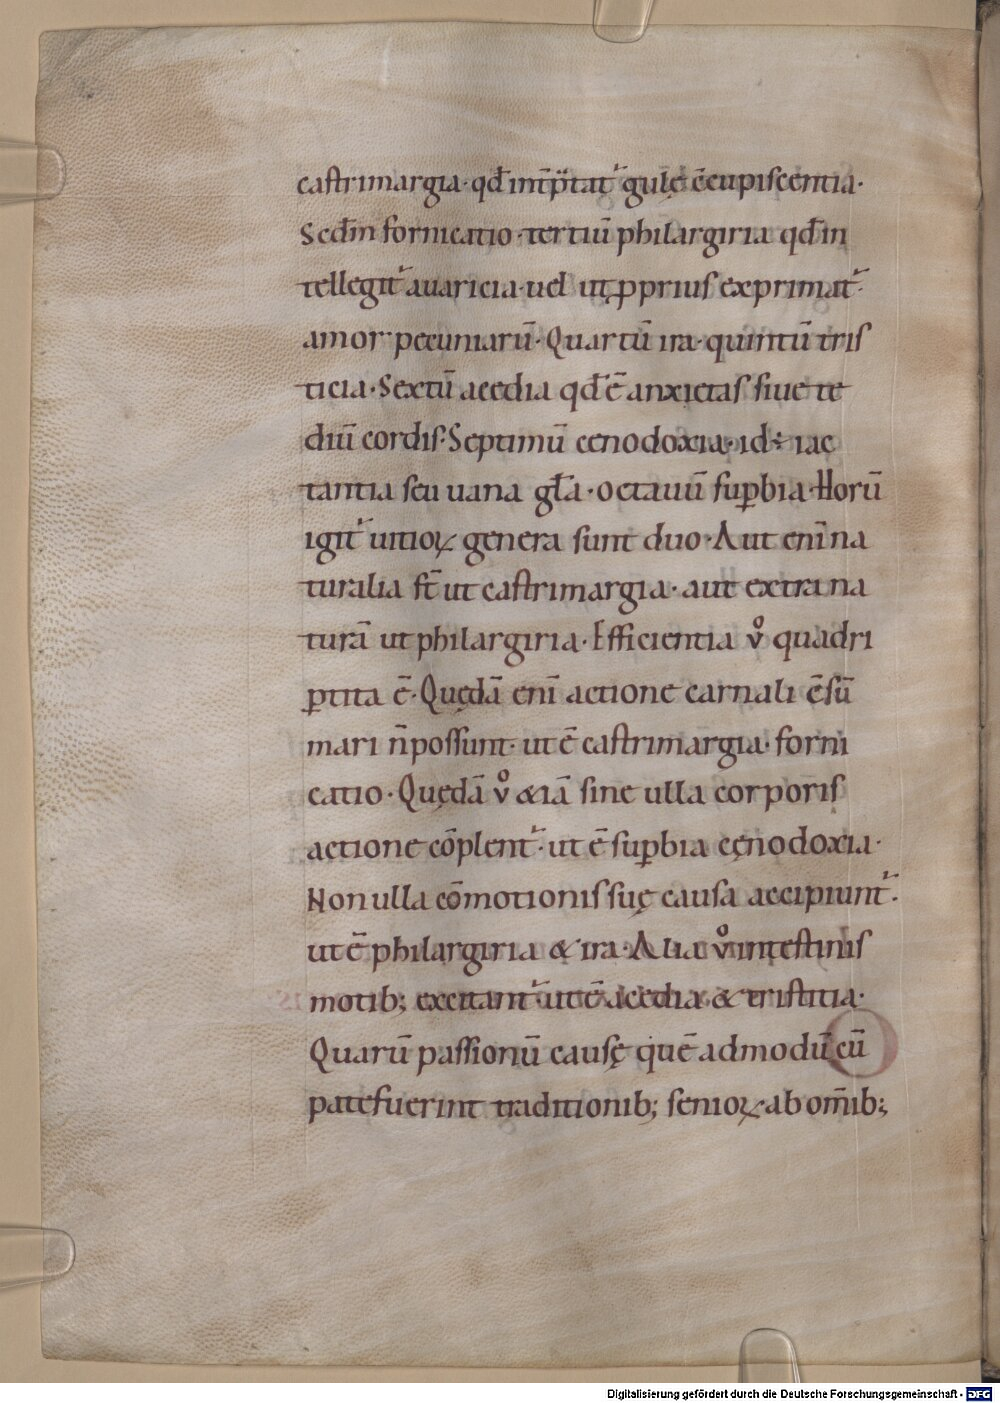 castrimargia· qđ int̄p̄tat᷑ gulę c̄cupiscentia·
Scd̄m fornicatio· tertiū philargiria qđ in
tellegit᷑ auaricia· uel ut ꝓprius exprimat᷑·
amor pecuniarū· Quartū ira· quintū tris
ticia· Sextū acedia qđ ē anxietas siue te
diū cordis· Septimū cenodoxia· id÷ iac
tantia seu uana gl̄a· octauū suꝑbia· Horū
igit᷑ uitioꝝ genera sunt duo· Aut enī na
turalia st̄ ut castrimargia· aut extra na
turā ut philargiria· Efficientia v̊ quadri
ꝑtita ē· Quędā enī actione carnali c̄sū
mari n̄ possunt· ut ē castrimargia· forni
catio· Quędā v̊ &iā sine ulla corporis
actione cōplent᷑· ut ē suꝑbia cęnodoxia·
Non ulla cōmotionis suę causa accipiunt᷑·
ut ē philargiria & ira· Alia v̊ intestinis
motib; excitant᷑· ut ē acedia & tristitia·
Quarū passionū causę quē admodū cū
patefuerint traditionib; senioꝝ ab om̄ib;
Digitalisierung gefördert durch die Deutsche Forschungsgemeinschaft - DFG